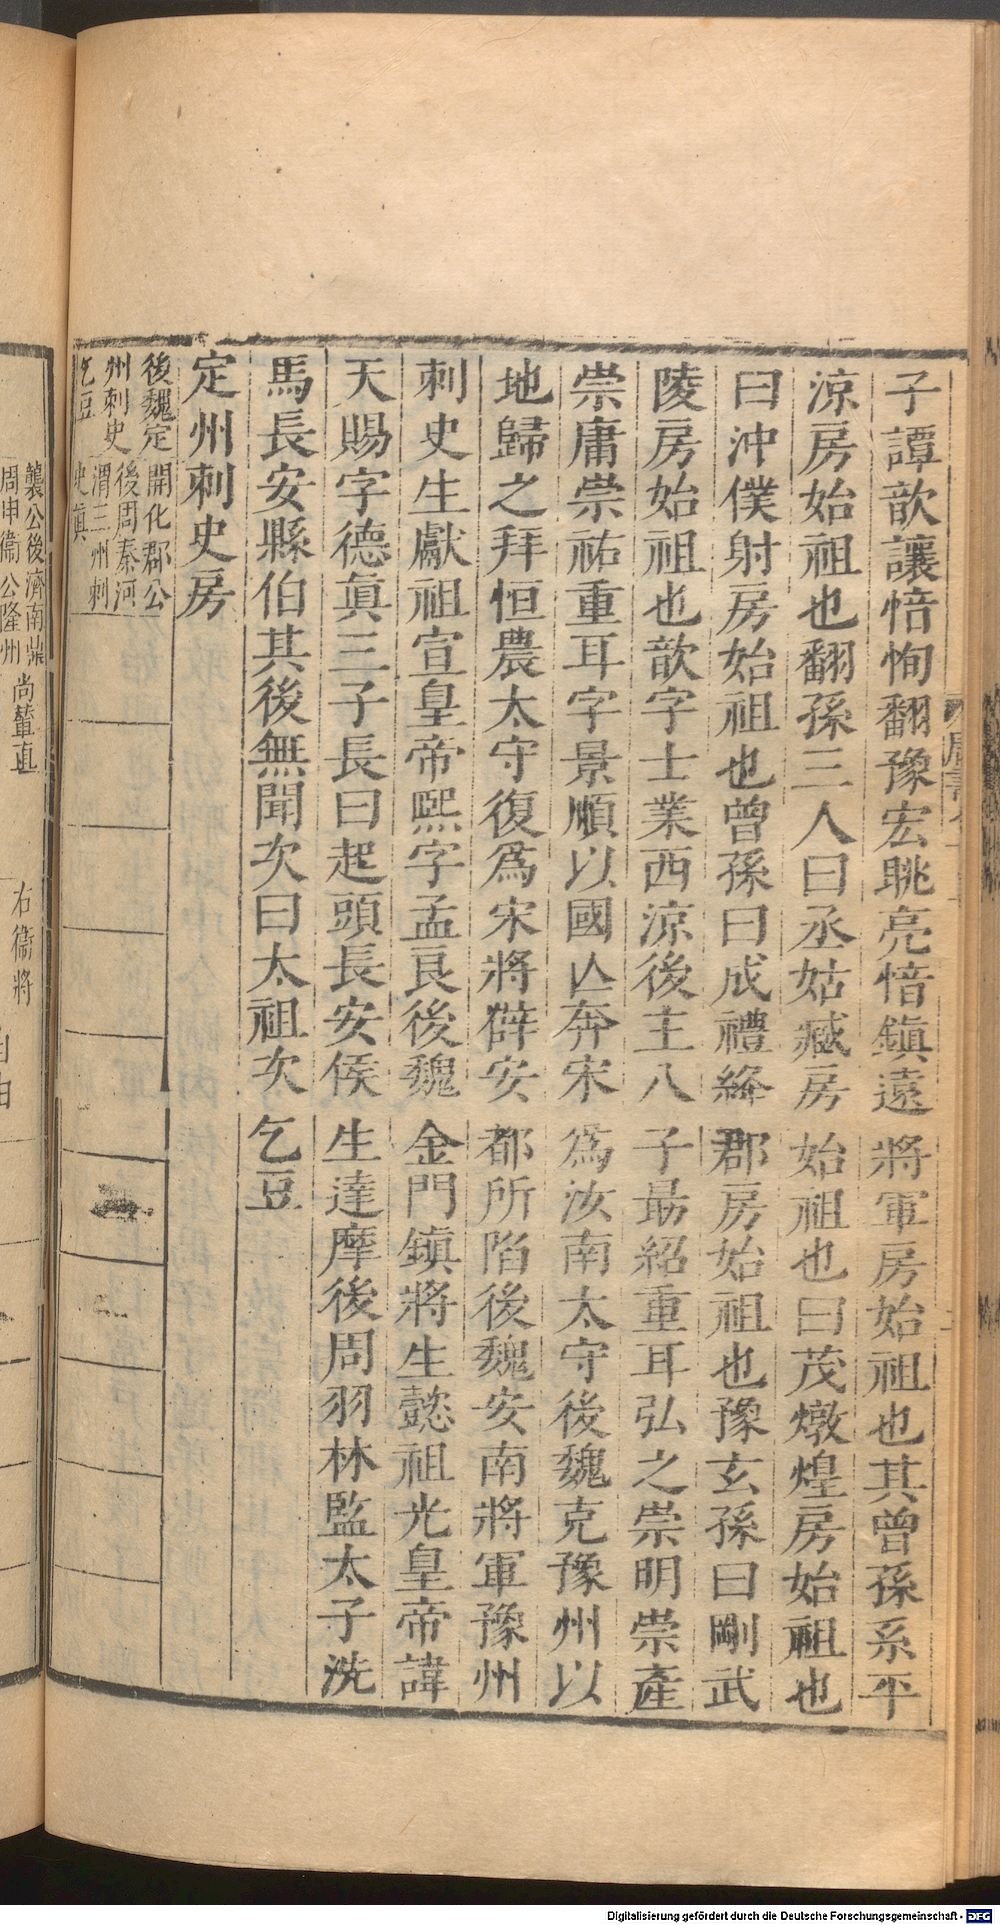 子譚歆讓愔恂翻豫宏眺亮愔鎮遠將軍房始祖也其曾孫系平
涼房始祖也翻孫三人曰丞姑臧房始祖也曰茂燉煌房始祖也
曰沖僕射房始祖也曾孫曰成禮絳郡房始祖也豫玄孫曰剛武
陵房始祖也歆字士業西涼後主八子最紹重耳弘之崇明崇產
崇庸崇祐重耳字景順以國亾奔宋為汝南太守後魏克豫州以
地歸之拜恒農太守復為宋將薛安都所陷後魏安南將軍豫州
刺史生獻祖宣皇帝熙字孟良後魏金門鎮將生懿祖光皇帝諱
天賜字德眞三子長曰起頭長安侯生達摩後周羽林監太子洗
馬長安縣伯其後無聞次曰太祖次乞豆
定州刺史房
後魏定
州刺史
乞豆
開化郡公
後周秦河
渭三州刺
史眞
襲公後濟南鼎
周申衞公隆州
尚輦直
右衞將
Digitalisierung gefördert durch die Deutsche Forschungsgemeinschaft - DFG